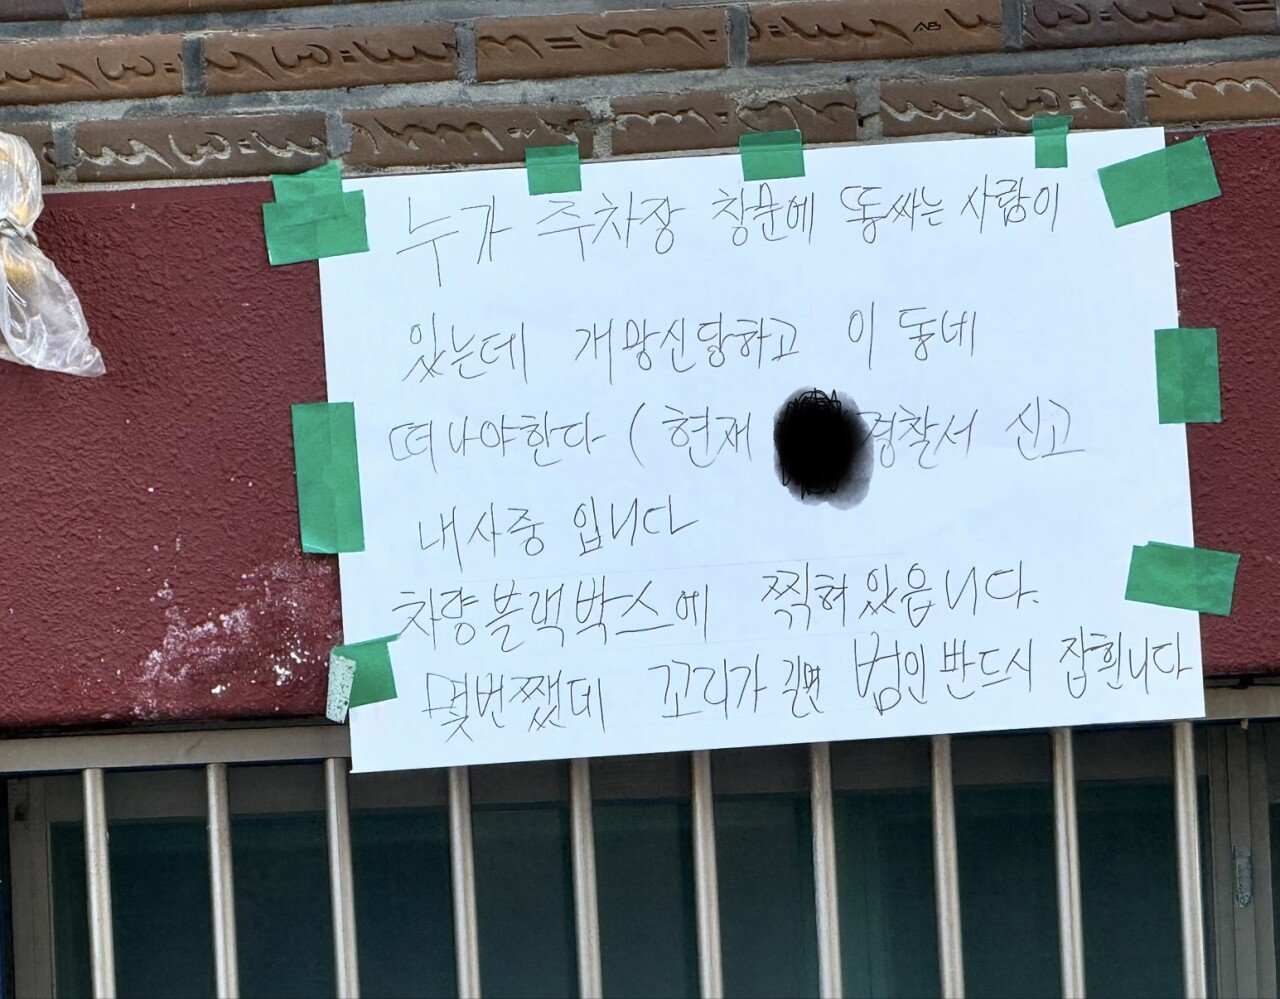 누가 주차장 창문에 똥싸는 사람이
있는데 개망신당하고 이 동네
떠나야한다 (현재 경찰서 신고
내사중 입니다
차량블랙박스에 찍혀있읍니다.
몇번쨌데 꼬리가 길면 범인반드시 잡힌니다